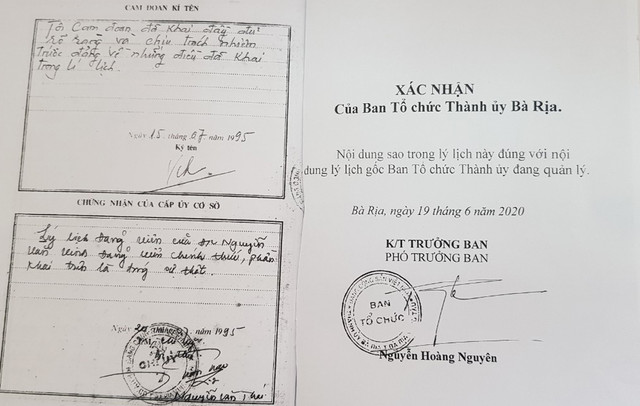 CAM ĐOAN KÍ TÊN
Tôi Cam đoan đã khai đầy đủ
rõ ràng và chịu trách nhiệm
trước đảng về những điều đã khai
trong lí lịch.
Ngày 15 tháng 07 năm 1995
Ký tên
CHỨNG NHẬN CỦA CẤP ỦY CƠ SỞ
Lý lịch đảng viên của đ/c Nguyễn
Văn Vinh đảng viên chính thức, phần
khai trên là đúng sự thật.
Ngày 20 năm 1995
Nguyễn Văn
XÁC NHẬN
Của Ban Tổ chức Thành ủy Bà Rịa.
Nội dung sao trong lý lịch này đúng với nội
dung lý lịch gốc Ban Tổ chức Thành ủy đang quản lý.
Bà Rịa, ngày 19 tháng 6 năm 2020
K/T TRƯỞNG BAN
PHÓ TRƯỞNG BAN
BAN
TỔ CHỨC
Nguyễn Hoàng Nguyên